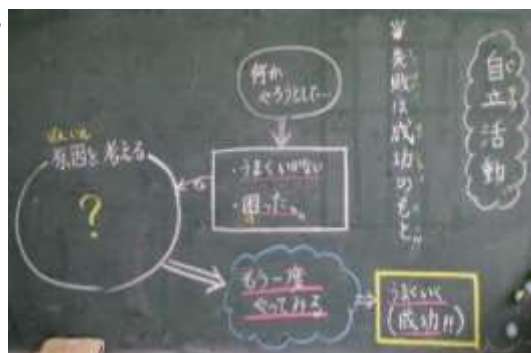 自立活動
失敗は成功のもと〃
何か
やろうとして…
・うまくいかない
・困った。
げんいん
原因を考える
?
もう一度
やってみる
うまくいく
(成功〃)